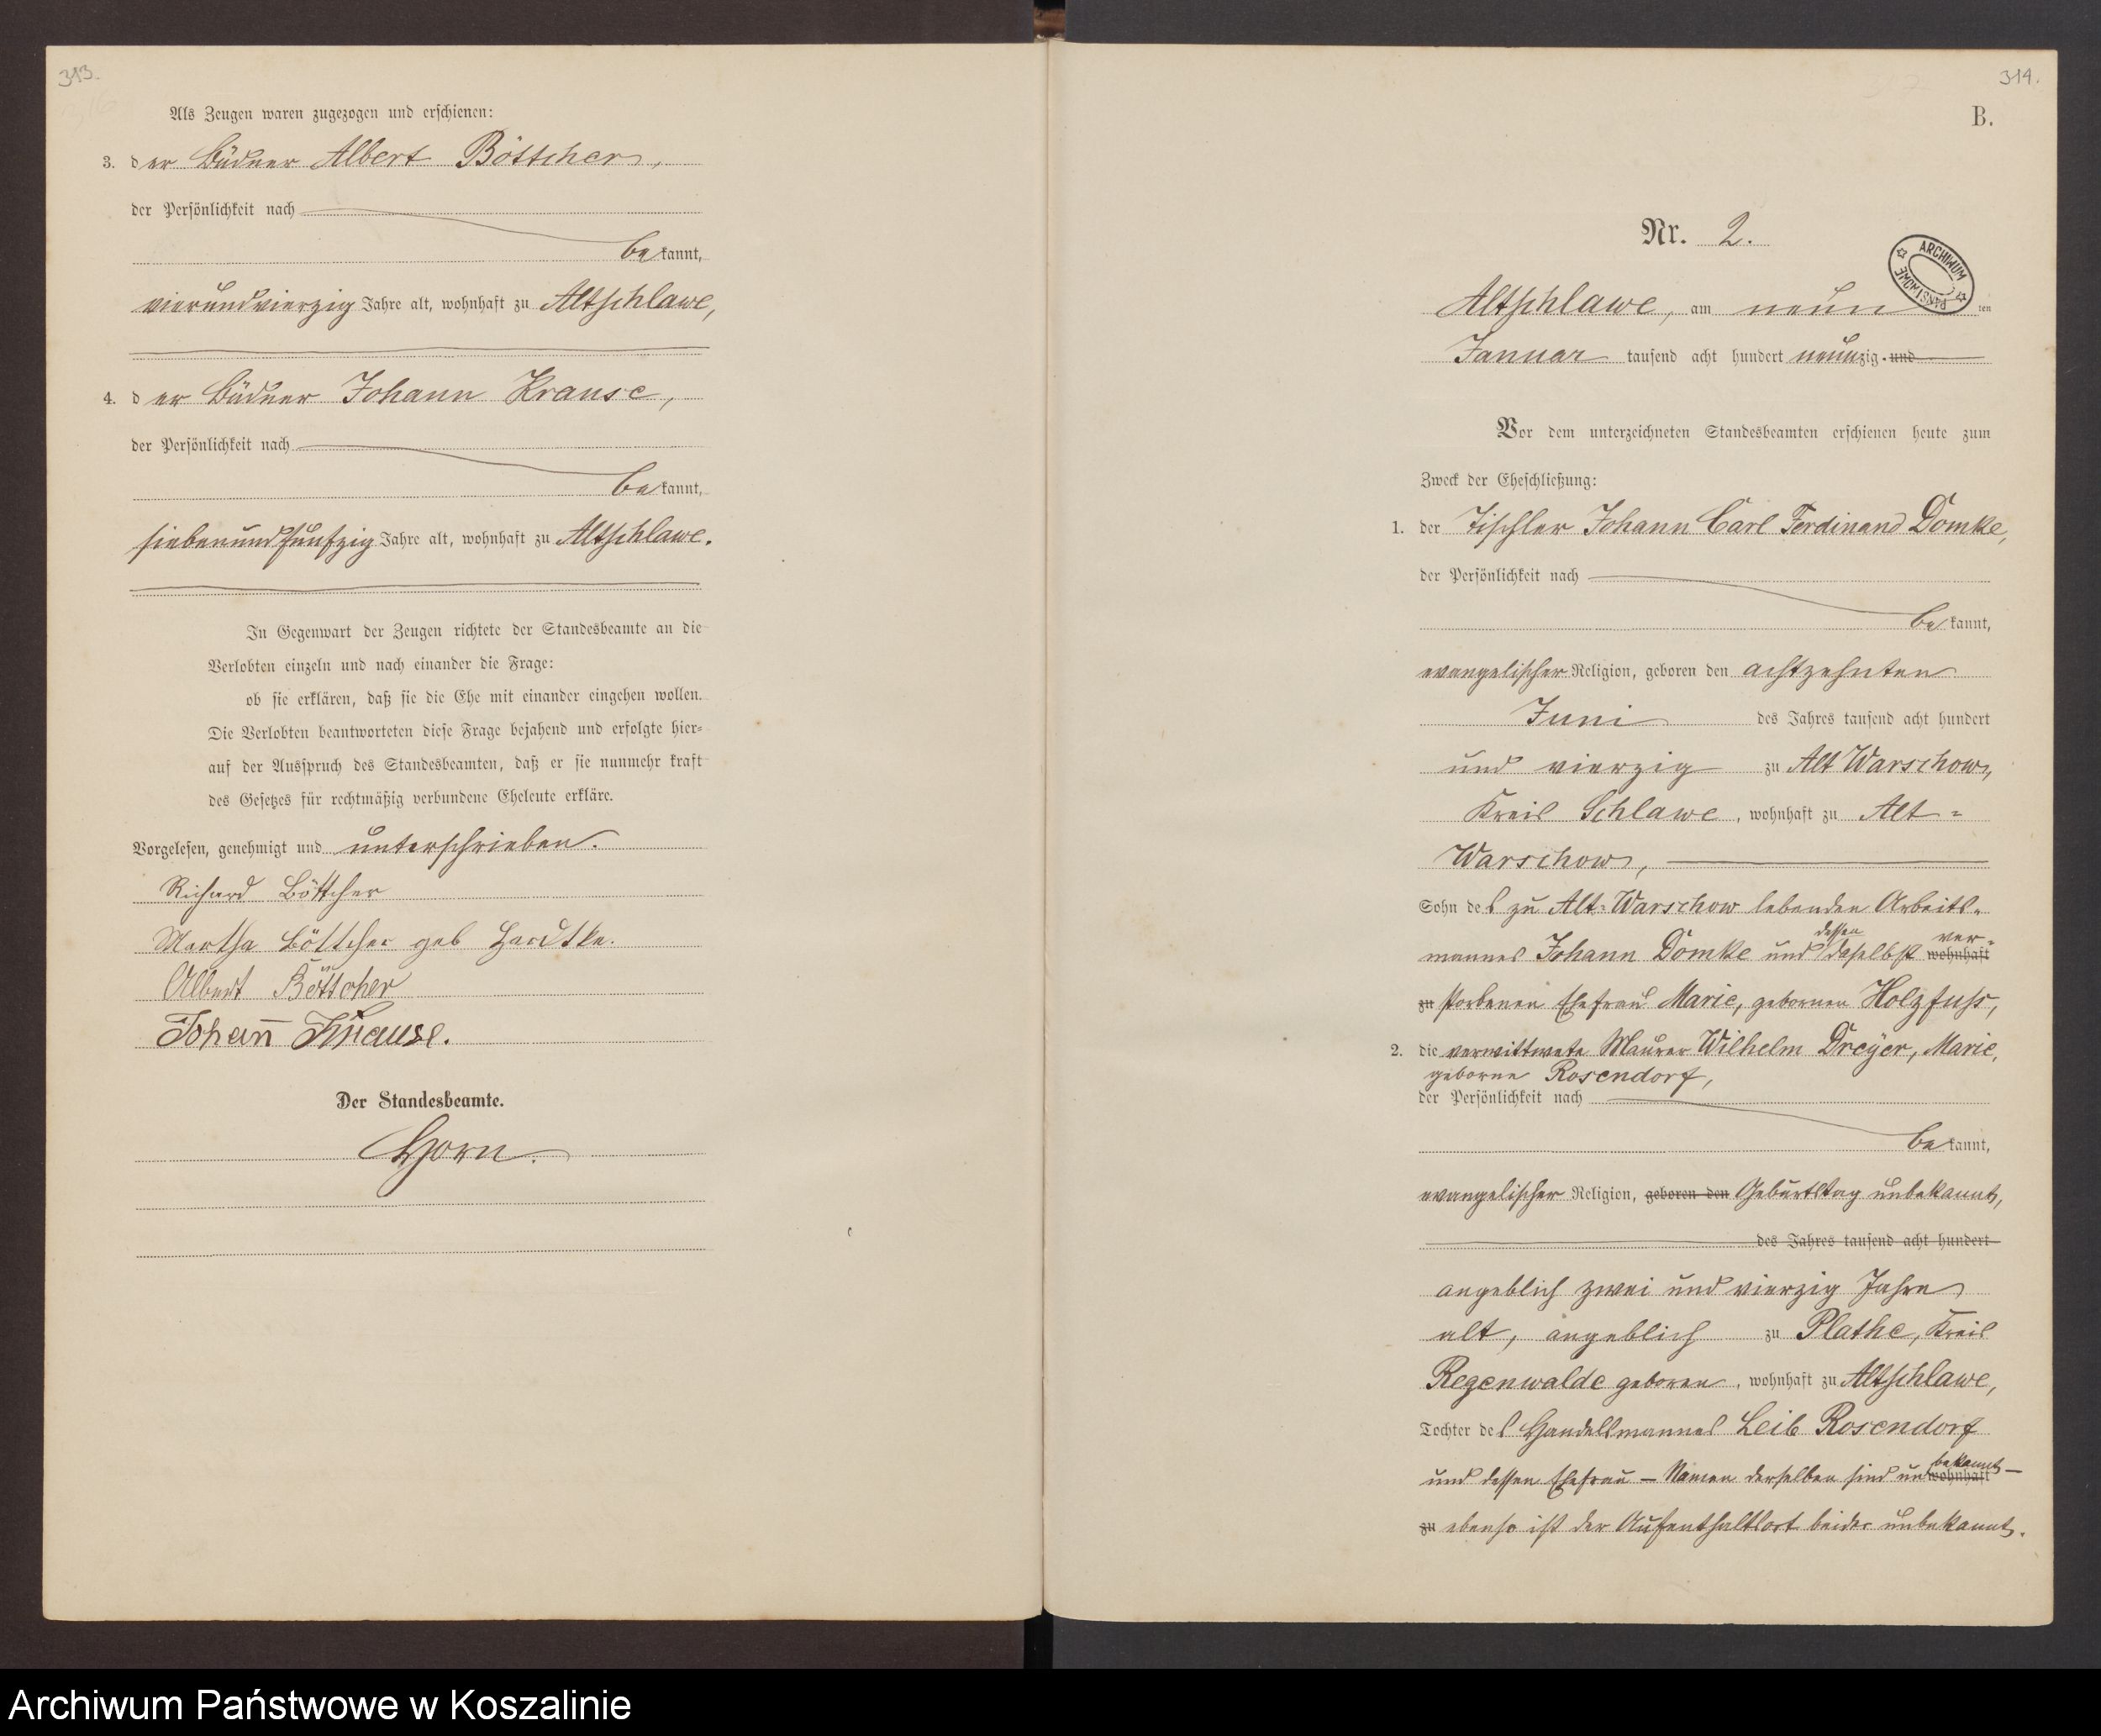 313.
Als Zeugen waren zugezogen und erschienen:
3. der Büdner Albert Böttcher,
der Persönlichkeit nach
bekannt,
vierundvierzig Jahre alt, wohnhaft zu Altschlawe,
4. der Büdner Johann Krause,
der Persönlichkeit nach
bekannt,
siebenundfünfzig Jahre alt, wohnhaft zu Altschlawe.
In Gegenwart der Zeugen richtete der Standesbeamte an die
Verlobten einzeln und nach einander die Frage:
ob sie erklären, daß sie die Ehe mit einander eingehen wollen.
Die Verlobten beantworteten diese Frage bejahend und erfolgte hier-
auf der Ausspruch des Standesbeamten, daß er sie nunmehr kraft
des Gesetzes für rechtmäßig verbundene Eheleute erkläre.
Vorgelesen, genehmigt und unterschrieben.
Richard Böttcher
Martha Böttcher geb Hardtke.
Albert Böttcher
Johann Krause.
Der Standesbeamte.
Horn.
314.
B.
Nr. 2.
ARCHIWUM PAŃSTWOWE
Altschlawe, am neun ten
Januar tausend acht hundert neunzig und
Vor dem unterzeichneten Standesbeamten erschienen heute zum
Zweck der Eheschließung:
1. der Tischler Johann Carl Ferdinand Domke,
der Persönlichkeit nach
bekannt,
evangelischer Religion, geboren den achtzehnten
Juni des Jahres tausend acht hundert
und vierzig zu Alt Warschow,
Kreis Schlawe, wohnhaft zu Alt-
Warschow,
Sohn des zu Alt-Warschow lebenden Arbeits-
mannes Johann Domke und dessen daselbst ver- wohnhaft
zu storbenen Ehefrau Marie, gebornen Holzfuss,
2. die verwittwete Maurer Wilhelm Dreyer, Marie,
geborne Rosendorf,
der Persönlichkeit nach
bekannt,
evangelischer Religion, geboren den Geburtstag unbekannt,
des Jahres tausend acht hundert
angeblich zwei und vierzig Jahre
alt, angeblich zu Plathe, Kreis
Regenwalde geboren, wohnhaft zu Altschlawe,
Tochter des Handelsmannes Leib Rosendorf
und dessen Ehefrau – Namen derselben sind unbekannt – wohnhaft
zu ebenso ist der Aufenthaltsort beider unbekannt.
Archiwum Państwowe w Koszalinie